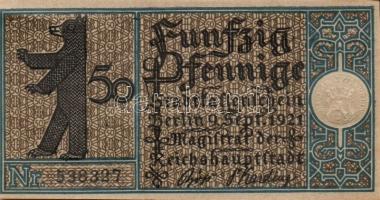 Funfzig
50 Pfennige
Stadtkassenschein
Berlin 9. Sept. 1921
Magistrat der
Reichshauptstadt
Nr. 538337